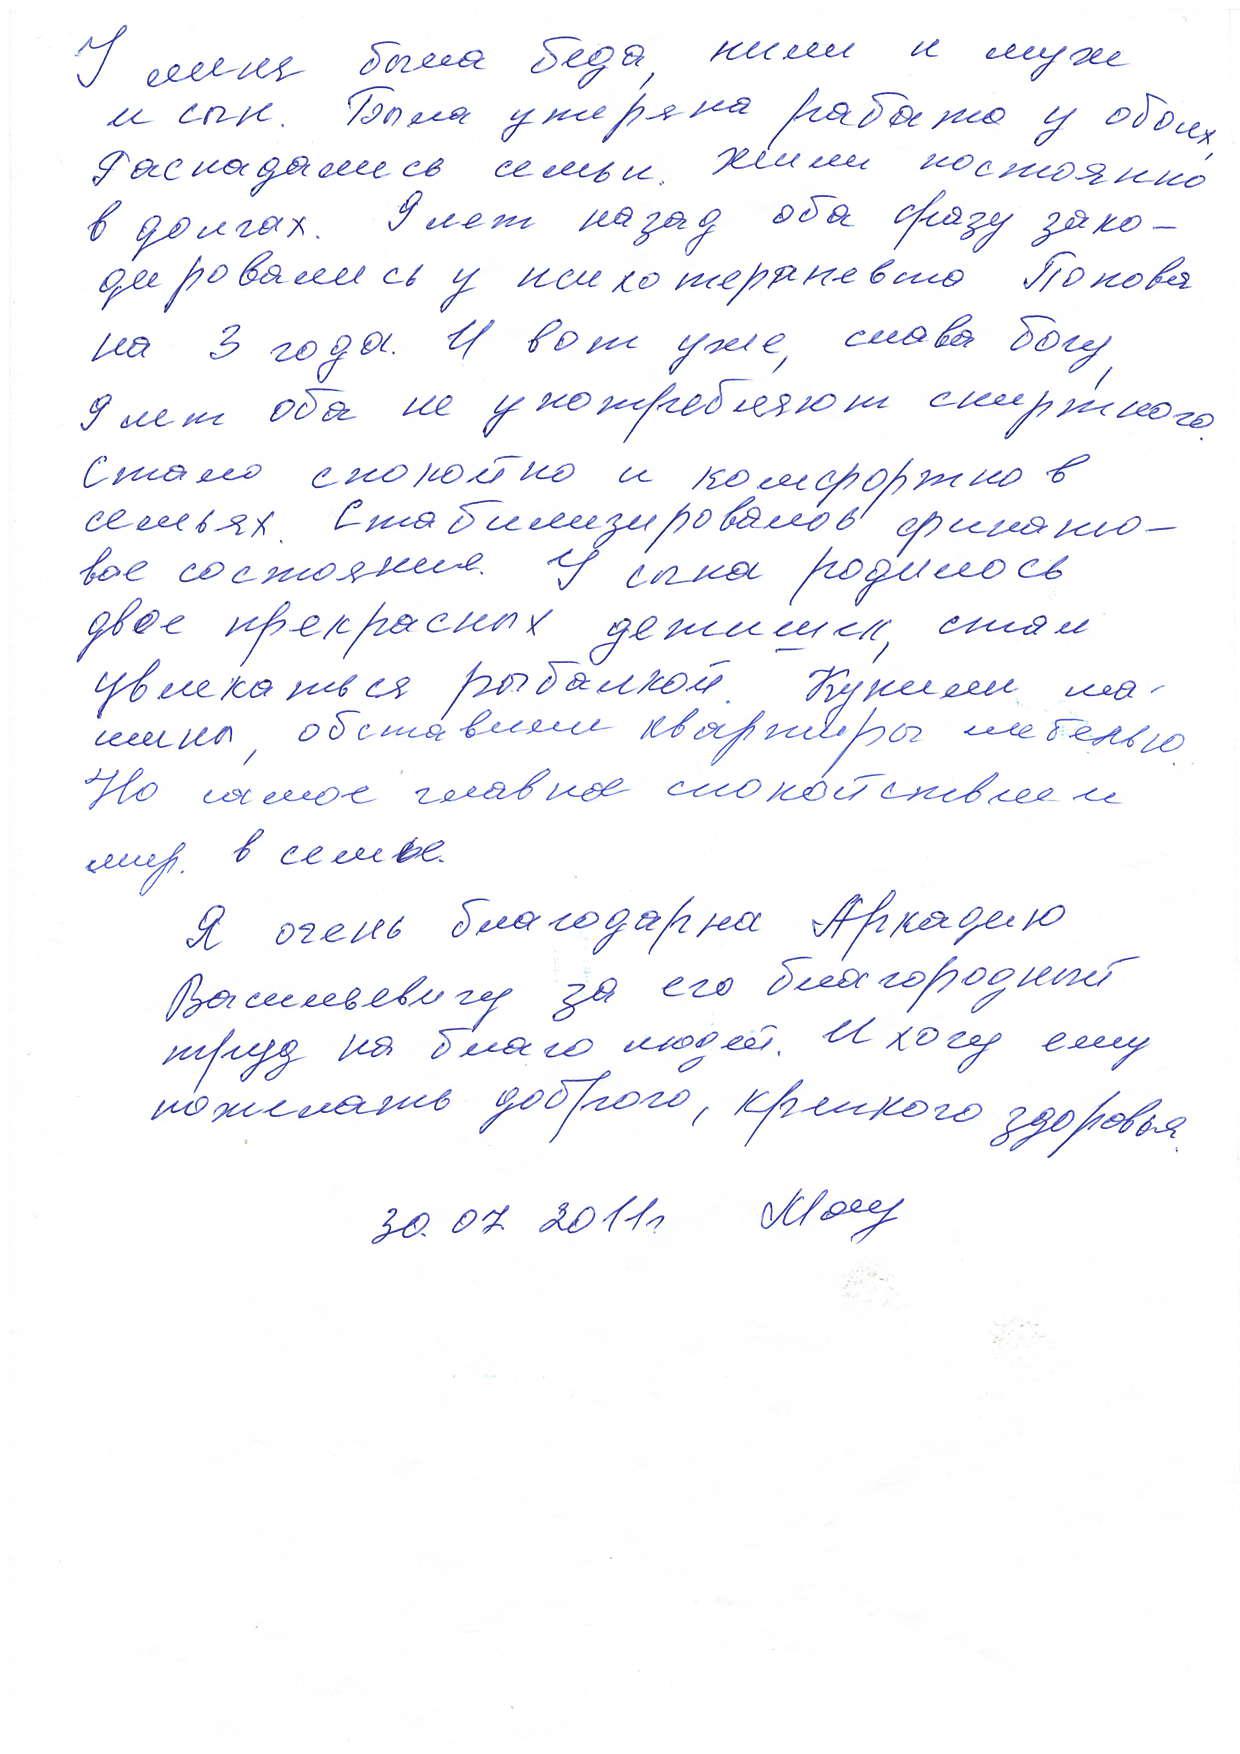 У меня была беда, пили и муж
и сын. Была утеряна работа у обоих,
Распадались семьи. Жили постоянно
в долгах. 9 лет назад оба сразу зако-
дировались у психотерапевта Попова
на 3 года. И вот уже, слава богу,
9 лет оба не употребляют спиртного.
Стало спокойно и комфортно в
семьях. Стабилизировалось финансо-
вое состояния. У сына родилось
двое прекрасных детишек, стал
увлекаться рыбалкой. Купили ма-
шины, обставили квартиры мебелью.
Но самое главное спокойствие и
мир. в семье.
Я очень благодарна Аркадию
Васильевичу за его благородный
труд на благо людей. И хочу ему
пожелать доброго, крепкого здоровья.
30.07.2011г